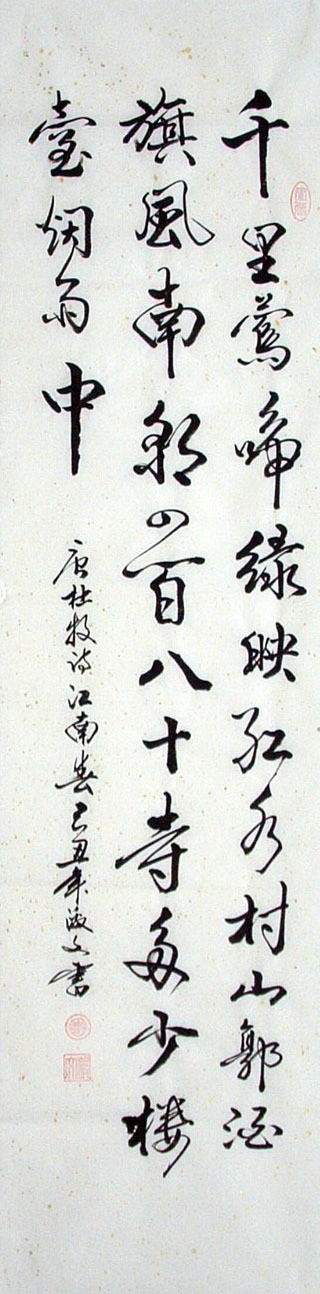 千里鶯啼绿映红水村山郭酒
旗風南朝四百八十寺多少楼
臺烟雨中
唐杜牧诗江南春己丑年文書